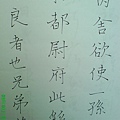 舍欲使一孫
都尉府此
良者也兄弟